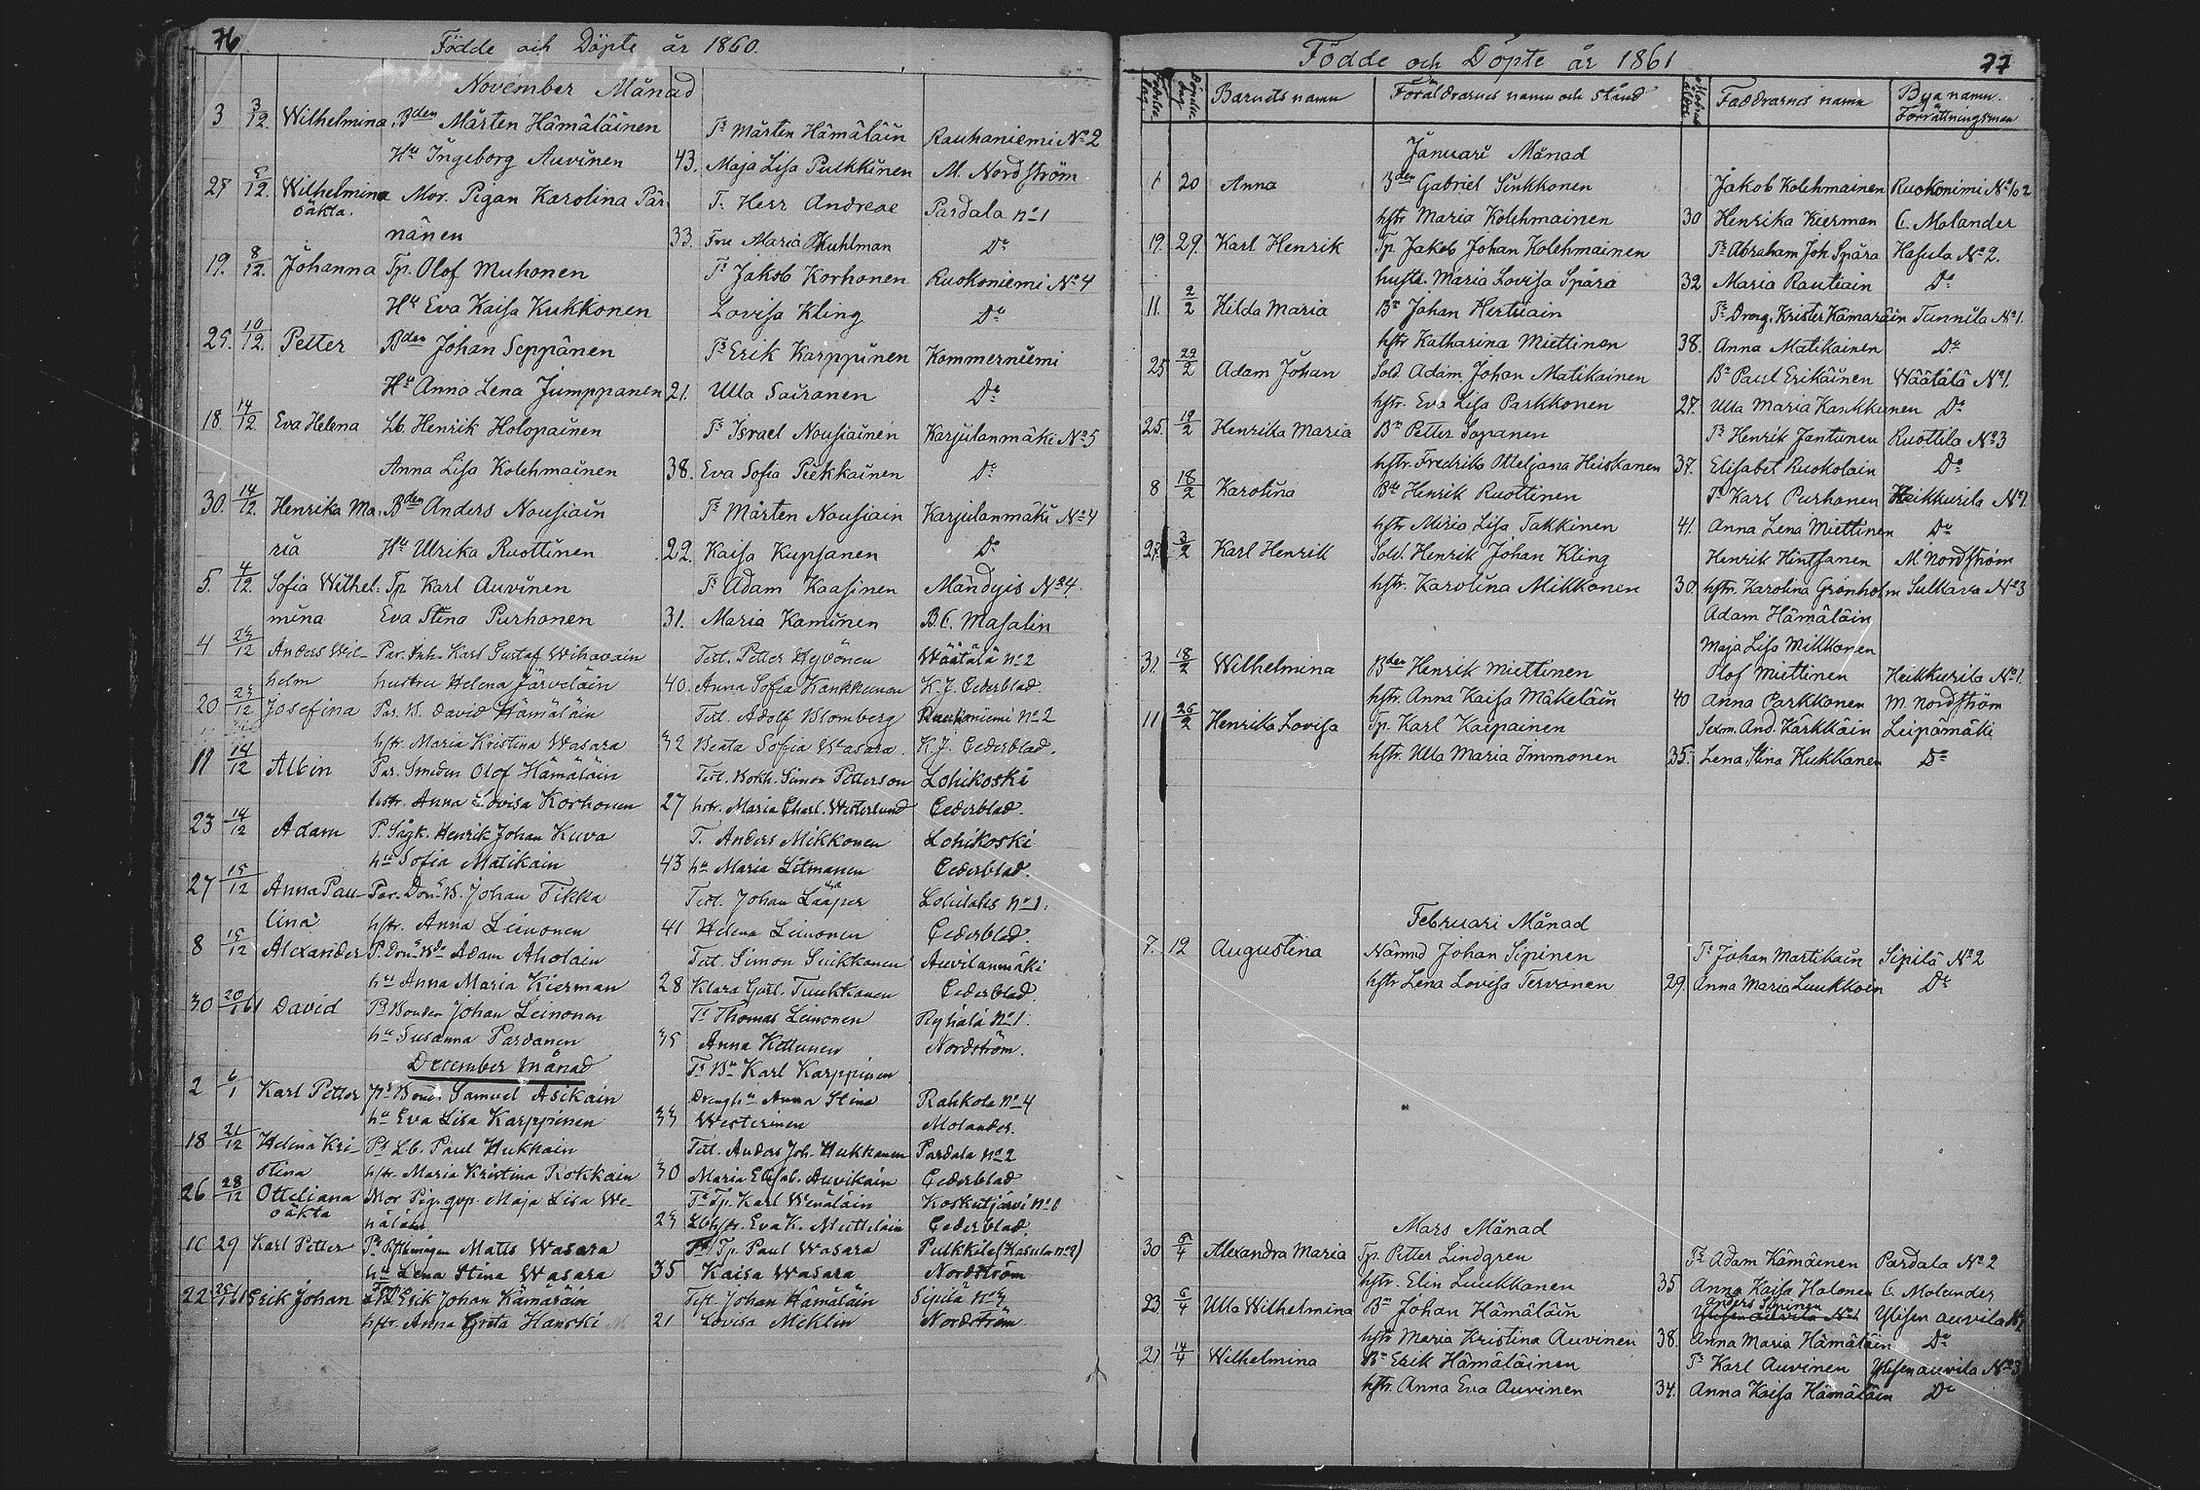 76
Födde och Döpte år 1860.
November Månad
3 3/12. Wilhelmina. Bden Mårten Hämäläinen Ts Mårten Hämäläin Rauhaniemi No 2
Hu Ingeborg Auvinen 43. Maja Lisa Pulkkinen M. Nordström
27 8/12. Wilhelmina Mor. Pigan Karolina Pär- T. Herr Andreae Pardala no 1
oäkta. nänen 33. Fru Maria Kuhlman Do
19. 8/12. Johanna Tp. Olof Muhonen Ts Jakob Korhonen Ruokoniemi No 4
Hu Eva Kaisa Kukkonen Lovisa Kling Do
25. 10/12. Petter Bden Johan Seppänen Ts Erik Karppinen Kommerniemi
Hu Anna Lena Jumppanen 21. Ulla Sairanen Do
18. 14/12. Eva Helena Lb. Henrik Holopainen Ts Israel Nousiainen Karjulanmäki No 5
Anna Lisa Kolehmainen 38. Eva Sofia Pekkäinen Do
30. 14/12. Henrika Ma- Bden Anders Nousiain Ts Mårten Nousiain Karjulanmäki No 4
ria Hu Ulrika Ruottinen 22. Kaisa Kupsanen Do
5. 4/12. Sofia Wilhel- Tp. Karl Auvinen Ts Adam Kaasinen Mändyis No 4.
mina Eva Stina Purhonen 31. Maria Kaminen B.C. Masalin
4 24/12 Anders Wil- Par. Inh. Karl Gustaf Wihavain Test. Petter Hyvönen Wäätälä no 2
helm hustru Helena Järveläin 40. Anna Sofia Kankkunen K. J. Cederblad.
20 24/12 Josefina Par. B. David Hämäläin Test. Adolf Blomberg Rauhaniemi no 2
hstr. Maria Kristina Wasara 32 Beata Sofia Wasara. K. J. Cederblad.
11 14/12 Albin Par. Smeden Olof Hämäläin Test. Bokh. Simon Petterson Lohikoski
hstr. Anna Lovisa Korhonen 27 hstr. Maria Charl. Westerlund Cederblad.
23 14/12 Adam P. Sågk. Henrik Johan Kuva T. Anders Mikkonen Lohikoski
hu Sofia Matikain 43 hu Maria Litmanen Cederblad.
27 15/12 Anna Pau- Par. Don. B. Johan Tikka Test. Johan Lääper no 1.
lina hstr. Anna Leinonen 41 Helena Leinonen Cederblad.
8 15/12 Alexander P. Don. Bde Adam Aholain Test. Simon Suikkanen Auvilanmäki
hu Anna Maria Kierman 28 Klara Gust. Tuukkanen Cederblad.
30 20/1 61 David Ps Bonden Johan Leinonen Ts Thomas Leinonen Ryhälä no 1.
hu Susanna Pardanen 35 Anna Kettunen Nordström.
December Månad
2 6/1 Karl Petter Ps Bond. Samuel Asikain Ts Bn Karl Karppinen
Dreng hu Anna Stina Rahkola no 4
hu Eva Lisa Karppinen 33 Westerinen Molander.
18 21/12 Helena Kri- Ps Lb. Paul Hukkain Test. Anders Joh. Hukkanen Pardala no 2
stina hstr. Maria Kristina Kokkain 30 Maria Elisab. Auvikain Cederblad
26 28/12 Otteliana Mor Pig. Maja Lisa We- Ts Tp. Karl Wenäläin Koskutjärvi no 1
oäkta näläin 23 Lb hstr. Eva K. Miettiläin Cederblad.
10 29 Karl Petter Matts Wasara Tp. Paul Wasara Pulkkila (Kasula no 2)
hu Lena Stina Wasara 35 Kaisa Wasara Nordström
22 Erik Johan Erik Johan Kämäräin Test. Johan Hämäläin Sipilä no 3
hstr. Anna Greta Hanski 21 Lovisa Meklin Nordström
Födde och Döpte år 1861 77
Barnets namn Föräldrarnes namn och stånd Faddrarnes namn Bya namn. Förrättningsman
Januari Månad
1 20 Anna Bden Gabriel Sinkkonen Jakob Kolehmainen Ruokonimi No 1o2
hstr Maria Kolehmainen 30 Henrika Kierman C. Molander
19. 29. Karl Henrik Tp. Jakob Johan Kolehmainen Ts Abraham Joh Spåra Kasula No 2.
hustr. Maria Lovisa Spåra 32 Maria Rautiain Do
11. 2/2 Hilda Maria Bn Johan Hertuain Ts Dreng. Krister Kämäräin Tunnila No 1.
hstr Katharina Miettinen 38. Anna Matikainen Do
25 22/2 Adam Johan Sold. Adam Johan Matikainen Bn Paul Erikäinen Wäätälä No 1.
hstr. Eva Lisa Parkkonen 27. Ulla Maria Kankkunen Do
25. 12/2 Henrika Maria Bn Petter Sapanen Ts Henrik Jantunen Ruottila No 3
hstr. Fredrika Otteljana Heiskanen 37. Elisabet Ruokolain Do
8 18/2 Karolina Bn Henrik Ruottinen Ts Karl Purhonen Heikkurila No 1.
hstr Maria Lisa Takkinen 41. Anna Lena Miettinen Do
27. 3/2 Karl Henrik Sold. Henrik Johan Kling Henrik Hintsanen M. Nordström
hstr. Karolina Mikkonen 30. hstr. Karolina Grönholm Sulkava No 3
Adam Hämäläin
Maja Lisa Mikkonen
31. 18/2 Wilhelmina Bden Henrik Miettinen Olof Miettinen Heikkurila No 1
hstr. Anna Kaisa Mäkeläin 40 Anna Parkkonen M. Nordström
11 26/2 Henrika Lovisa Tp. Karl Kaipainen Sexm. And. Kärkkäin Leipämäki
hstr. Ulla Maria Immonen 35. Lena Stina Kukkanen Do
Februari Månad
7. 12 Augustina Nämnd Johan Sipinen Ts Johan Martikain Sipilä No 2
hstr Lena Lovisa Tervonen 29. Anna Maria Luukkoin Do
Mars Månad
30 5/4 Alexandra Maria Tp. Petter Lindgren Ts Adam Kämäinen Pardala No 2
hstr. Elin Luukkanen 35 Anna Kaisa Halonen C. Molander
23. 5/4 Ulla Wilhelmina Bn Johan Hämäläin Anders Sipinen Ylisen auvila No 1
hstr Maria Kristina Auvinen 38. Anna Maria Hämäläin Do
21 14/4 Wilhelmina Bn Erik Hämäläinen Ts Karl Auvinen Ylisen auvila No 3
hstr. Anna Eva Auvinen 34. Anna Kaisa Hämäläin Do